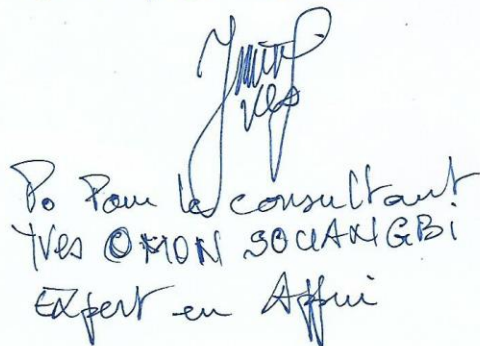 Yves
Po Pour le consultant
Yves OMON SOUANGBI
Expert en Appui